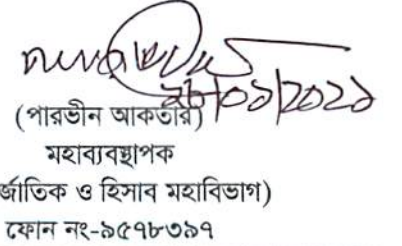 (পারভীন আকতার)
মহাব্যবস্থাপক
র্জাতিক ও হিসাব মহাবিভাগ)
ফোন নং-৯৫৭৮৩৯৭